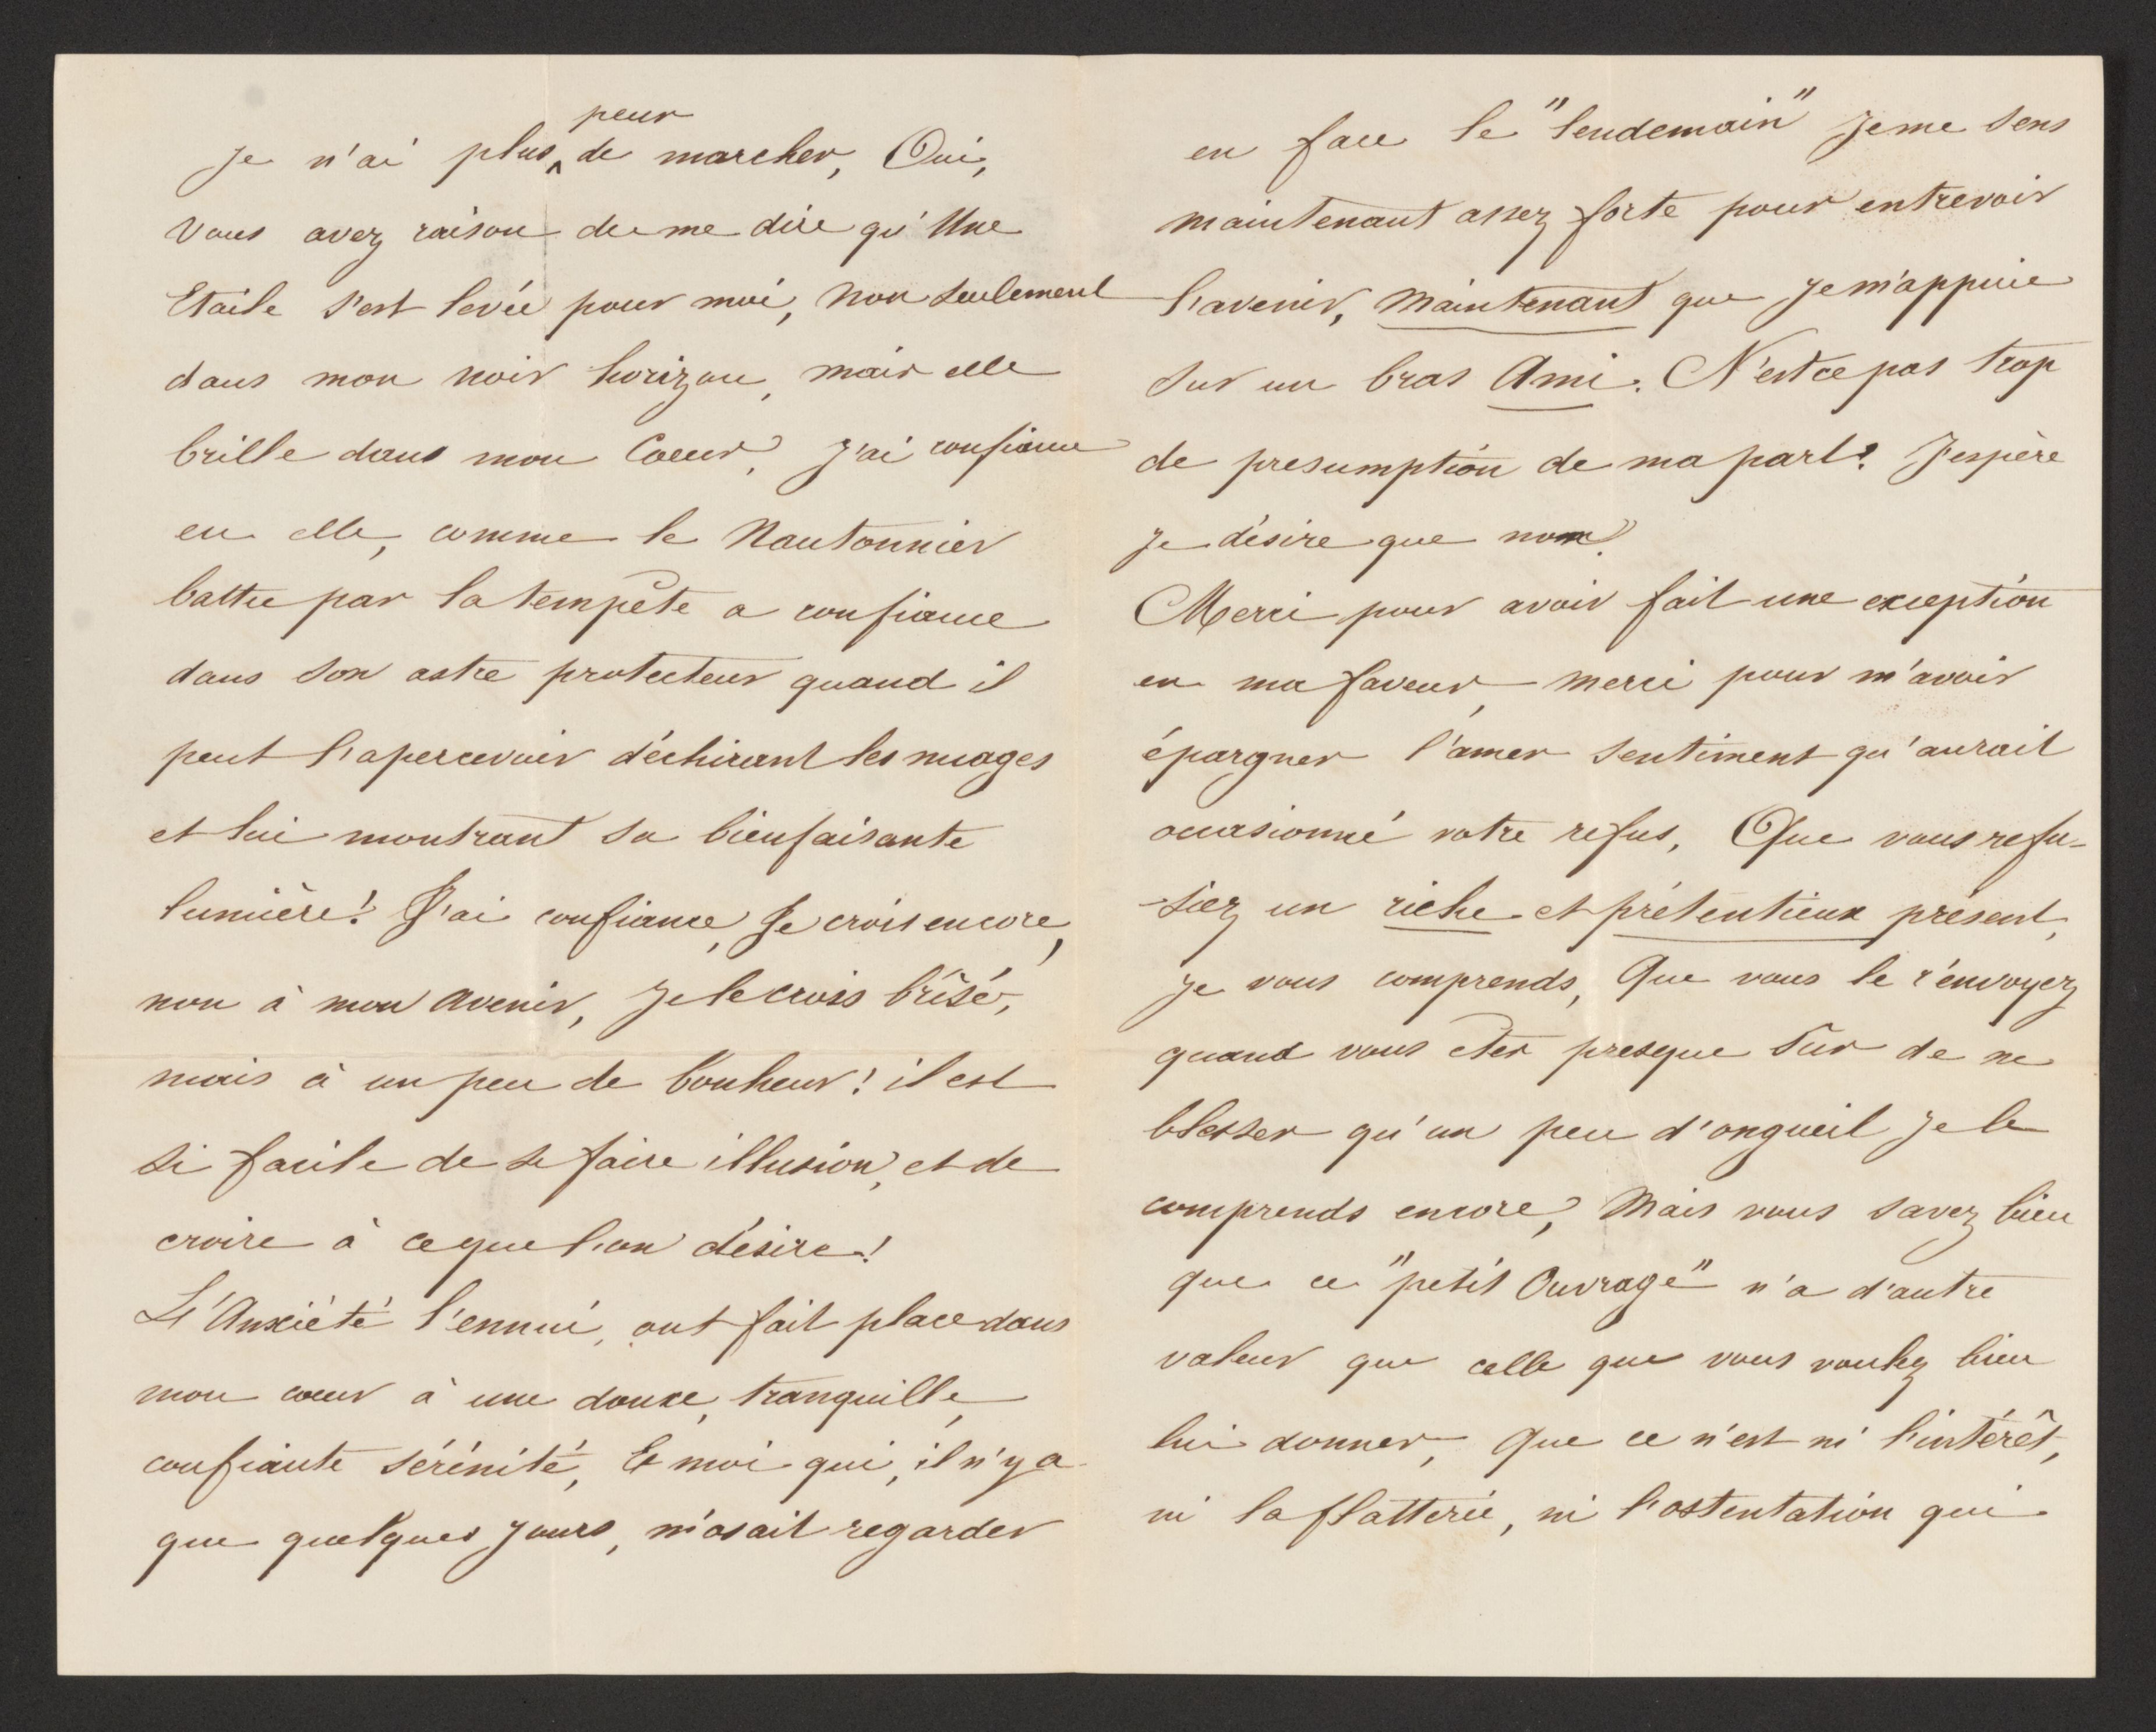 Je n'ai plus peur de marcher, Oui,
vous avez raison de me dire qu'Une
Etoile s'est levée pour moi, non seulement
dans mon noir horizon, mais elle
brille dans mon Coeur, J'ai confiance
en elle, comme le Nautonnier
battu par la tempête a confiance
dans son astre protecteur quand il
peut l'apercevoir déchirant les nuages
et lui montrant sa bienfaisante
lumière! J'ai confiance, Je crois encore,
non à mon avenir, Je le crois brisé,
mais à un peu de bonheur! il est
si facile de se faire illusion, et de
croire à ce que l'on désire!
L'Anxiété l'ennui, ont fait place dans
mon coeur à une douce, tranquille,
confiante sérénité, Et moi qui, il n'y a
que quelques jours, n'osait regarder
en face le "lendemain" Je me sens
maintenant assez forte pour entrevoir
l'avenir, maintenant que Je m'appuie
sur un bras Ami. N'est ce pas trop
de presumption de ma part? J'espère
Je désire que non.
Merci pour avoir fait une exception
en ma faveur, merci pour m'avoir
épargner l'amer sentiment qu'aurait
occasionné votre refus, Que vous refu-
-siez un riche et prétentieux présent,
Je vous comprends, Que vous le renvoyez
quand vous êtes presque sûr de ne
blesser qu'un peu d'orgueil Je le
comprends encore, Mais vous savez bien
que ce "petit Ouvrage" n'a d'autre
valeur que celle que vous voulez bien
lui donner, Que ce n'est ni l'intérêt,
ni la flatterie, ni l'ostentation qui